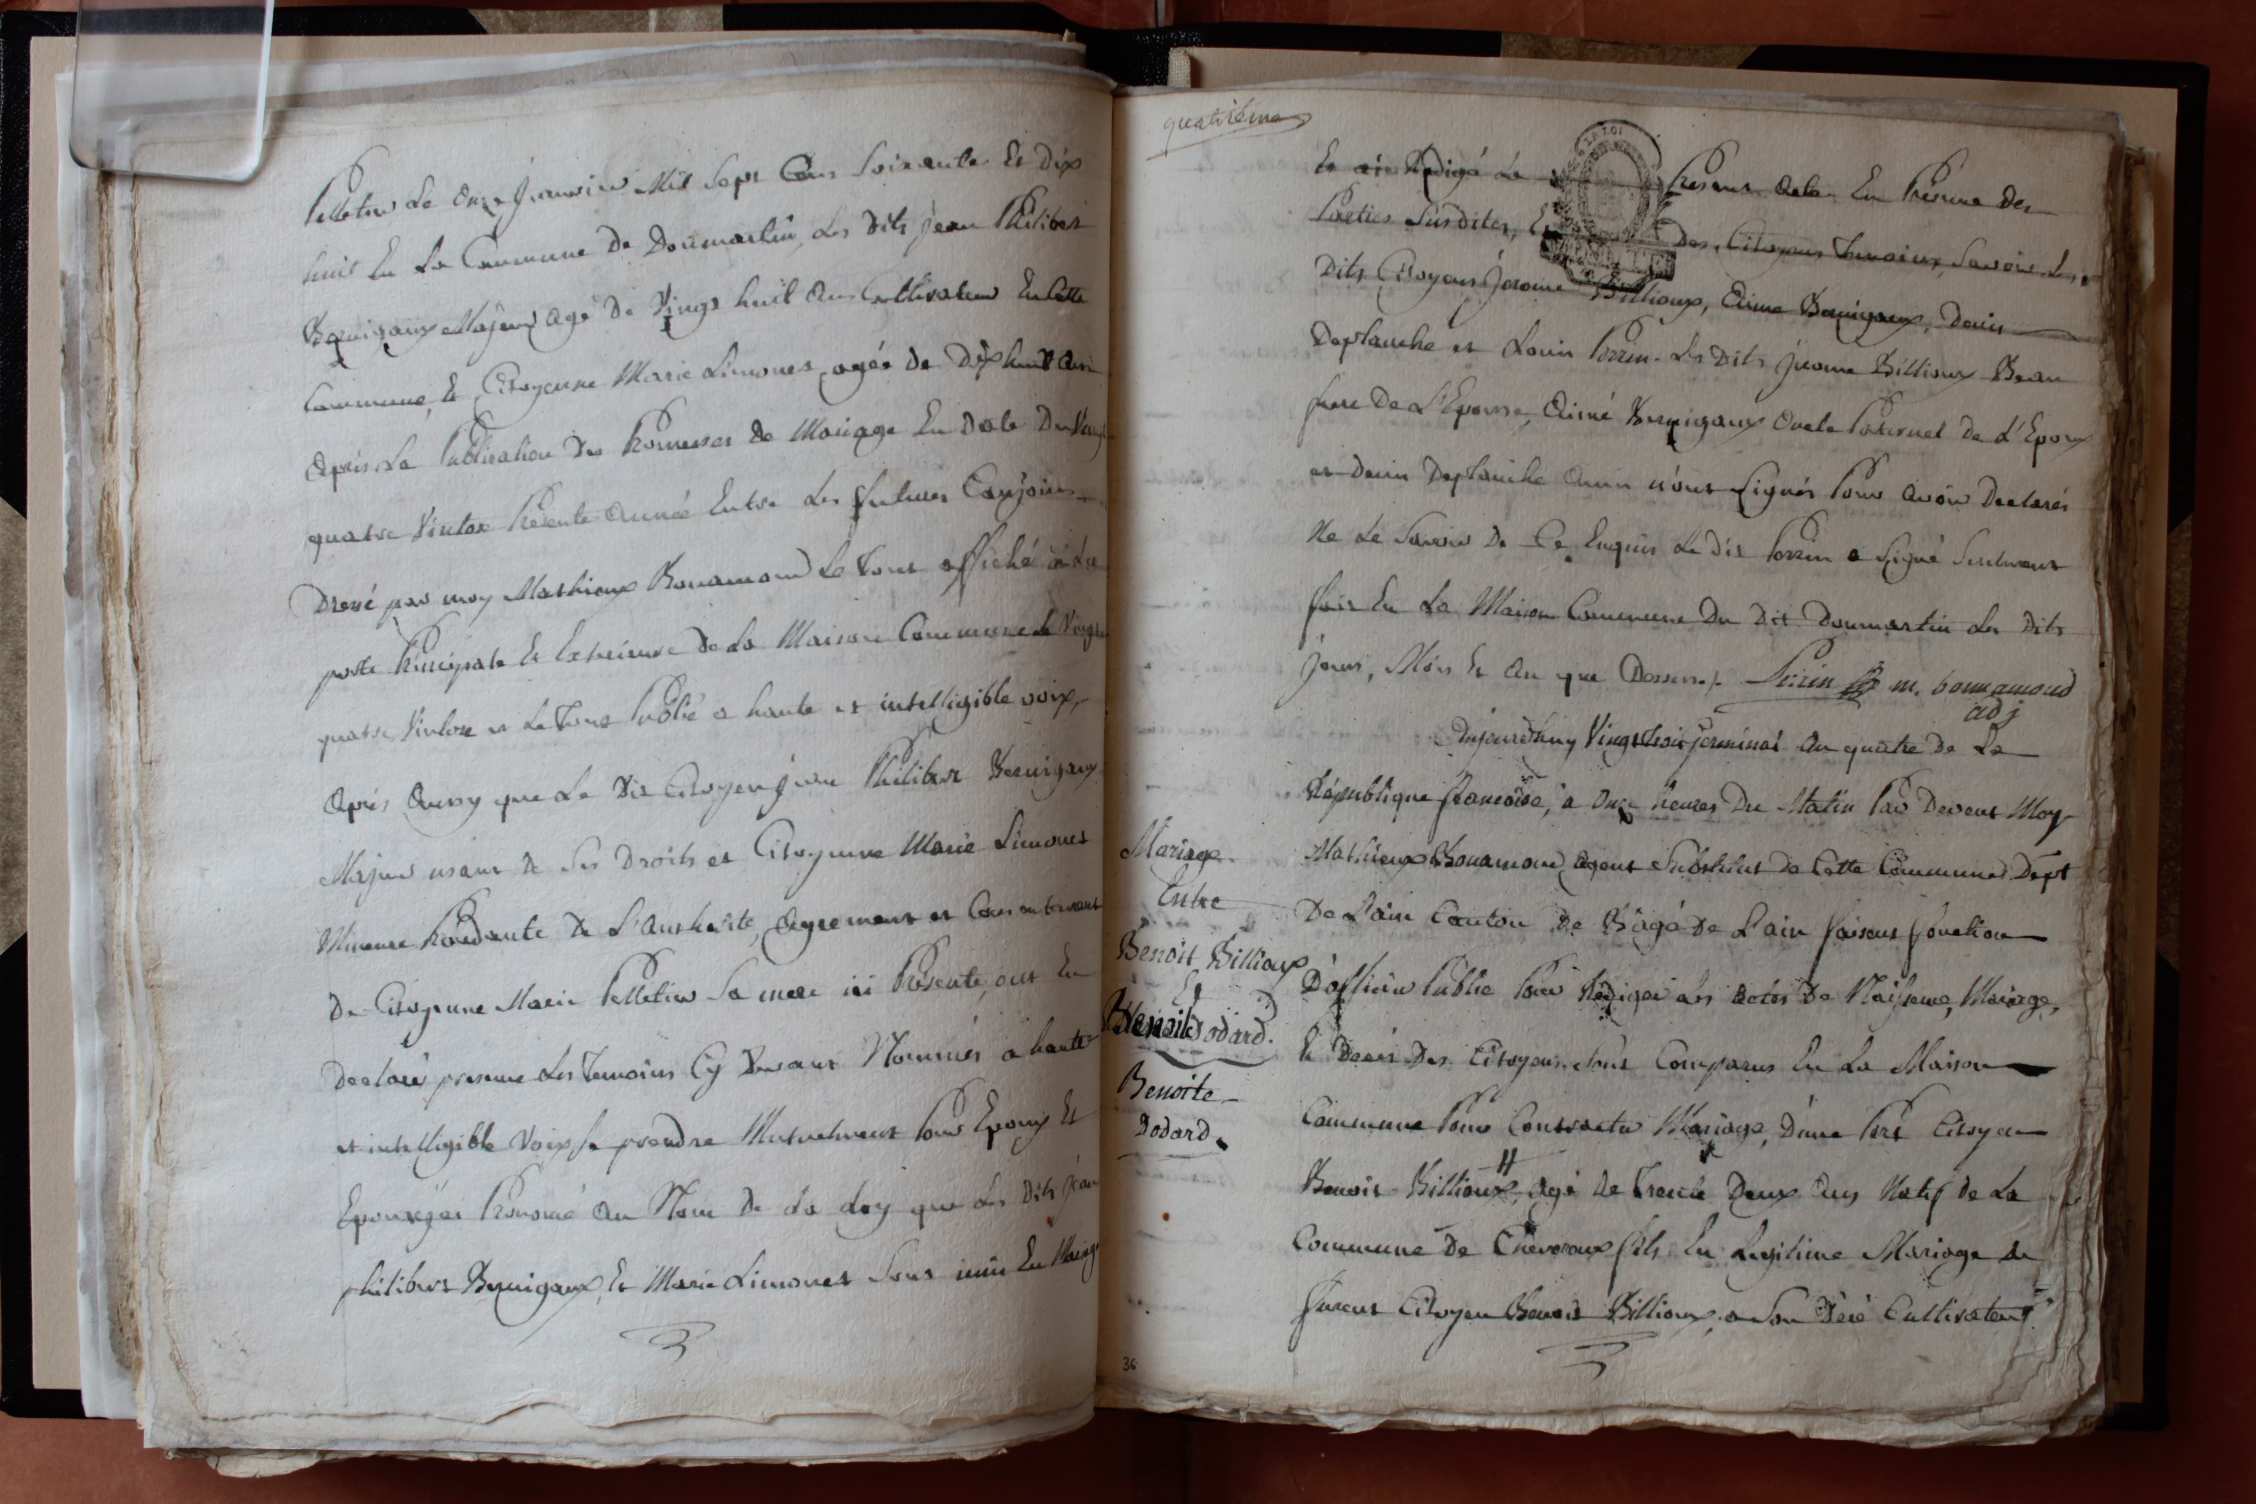 Pelletier Le Onze Janvier Mil Sept Cens Soixante Et Dix
huit En La Commune De Dommartin, Les Dits Jean Philibert
Bernigaux Majeur agé De Vingt huit Ans Cultivateur En Cette
Commune, Et Citoyenne Marie Limonet agée de Dix huit Ans
Après La Publication Des Promesses de Mariage En Date Du Vingt
quatre Vintose Présente Année Entre Les futures Conjoints
Dressé par moy Mathieux Bonamour Le Tout affiché à La
porte Principale Et Exterieure De La Maison Commune Le Vingt
quatre Vintose et Le Tout Publié a haute et intelligible voix,
Après Quoy que Le Dit Citoyen Jean Philibert Bernigaux
Majeur usant de Ses Droits et Citoyenne Marie Limonet
Mineure Procédante De L'Authorité, Agrement et Consentement
De Citoyenne Marie Pelletier Sa mere ici Présente, ont En
Declaré presence Les Temoins Cy Devant Nommés a haute
et intelligible Voix Se prendre Mutuelment Pour Epoux Et
Epouse j'ai Prononcé Au Nom De La Loy que Les Dits Jean
philibert Bernigaux, Et Marie Limonet Sont unis En Mariage
quatrième
Et ai Rédigé Le Present Acte En Présence Des
Parties Susdites, Et Des Citoyens Temoins, Savoir Les
Dits Citoyens Jerome Billioux, Aimé Bernigaux, Denis
Deplanche et Louis Perrin. Les Dits Jerome Billioux Beau
frere De L'Epouse, Aimé Bernigaux Oncle Paternel de L'Epoux
et Denis Deplanche Amis n'ont Signés Pour Avoir Declarés
Ne Le Savoir De Ce Enquis Le Dit Perrin a Signé Seulment
fait En La Maison Commune Du Dit Dommartin Les Dits
Jours, Mois Et An que Dessus. Perrin m. bonnamour
adj
Aujourdhuy Vingt trois Jerminal An quatre de La
République françoise, à Onze heures Du Matin Par Devant Moy
Mathieux Bonamour, Agent Substitut de Cette Commune Dept
De L'ain Canton De Bâgé De L'ain faisant fonction
D'officier Public Pour Rédiger Les Actes De Naissance, Mariage,
Et Decès Des Citoyens. Sont Comparus En La Maison
Commune Pour Contracter Mariage, D'une Part Citoyen
Benoit Billioux, Agé De Trente Deux Ans Natif de La
Commune De Chevroux fils En Legitime Mariage de
furent Citoyen Benoit Billioux, a Son Décé Cultivateur
Mariage
Entre
Benoit Billioux
Et
Benoite Dodard.
Benoite
Dodard
36